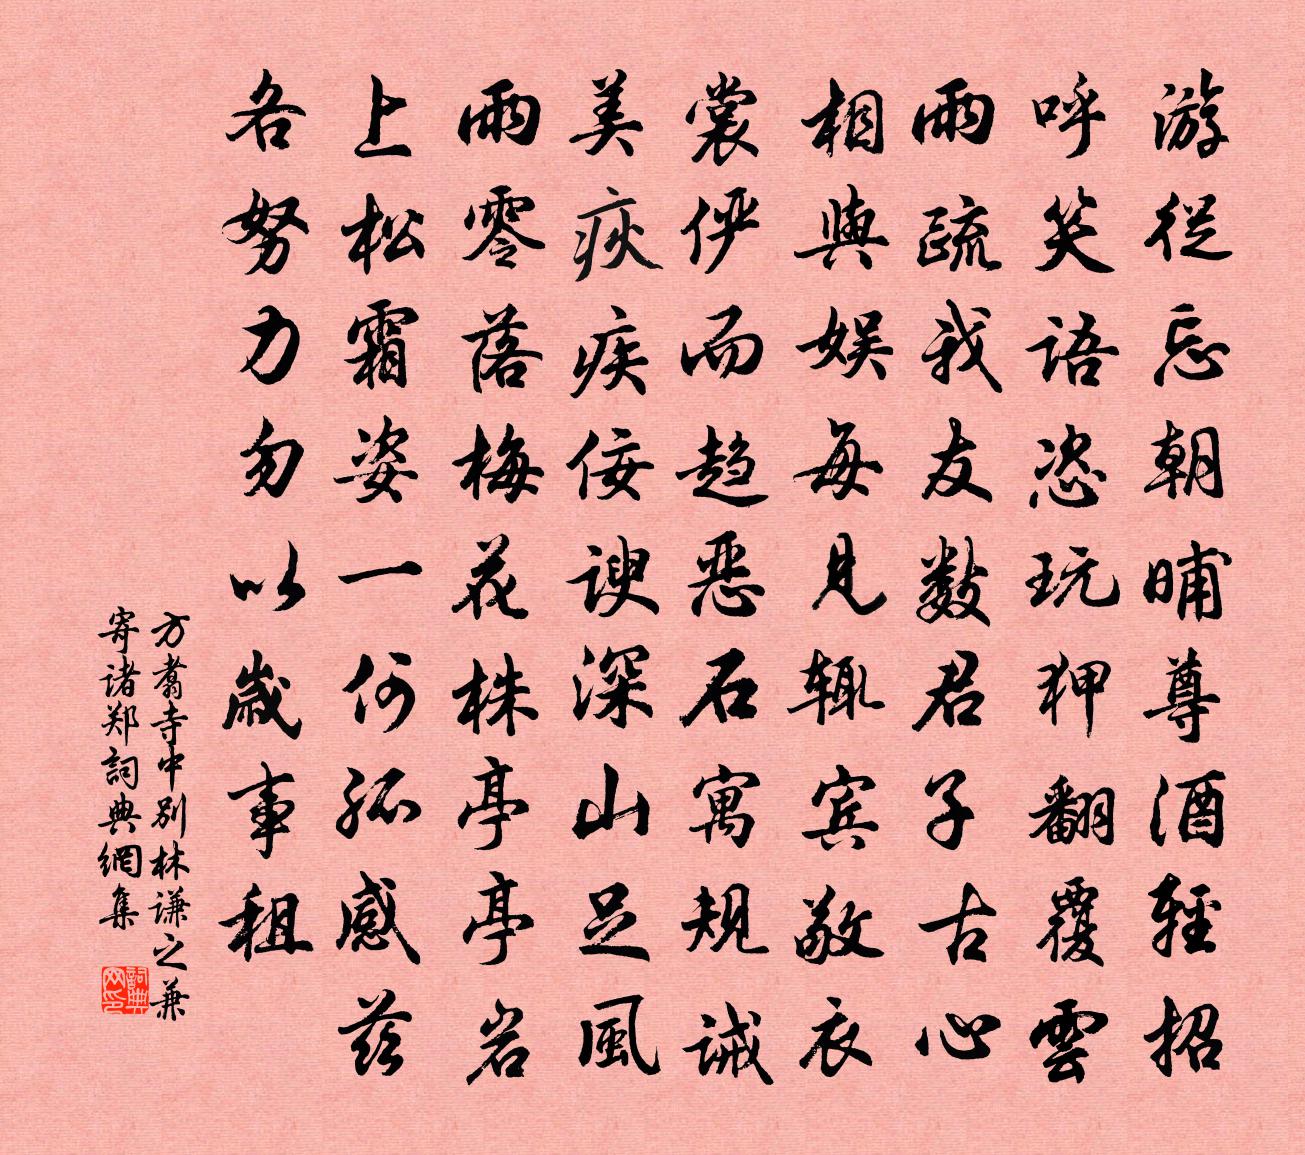 游從忘朝晡尊酒輕招
呼笑語恣玩狎翻覆雲
雨疏我友数君子古心
相與娱每見辄宾敬衣
裳俨而趋恶石寓规诫
美疢疾佞谀深山足風
雨零落梅花株亭亭岩
上松霜姿一何孤感兹
各努力勿以歲事租
方翥寺中别林谦之兼
寄诸郑詞典網集
詞典网印